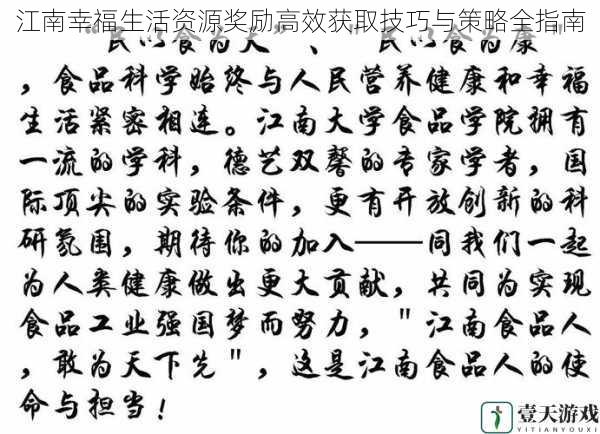 江南幸福生活资源奖励高效获取技巧与策略全指南
"民以食为天"、"民以食为康"
，食品科学始终与人民营养健康和幸福
生活紧密相连。江南大学食品学院拥有
一流的学科，德艺双馨的专家学者，国
际顶尖的实验条件，更有开放创新的科
研氛围，期待你的加入——同我们一起
为人类健康做出更大贡献，共同为实现
食品工业强国梦而努力，"江南食品人
，敢为天下先"，这是江南食品人的使
命与担当！
壹天游戏
YITIANYOUXI